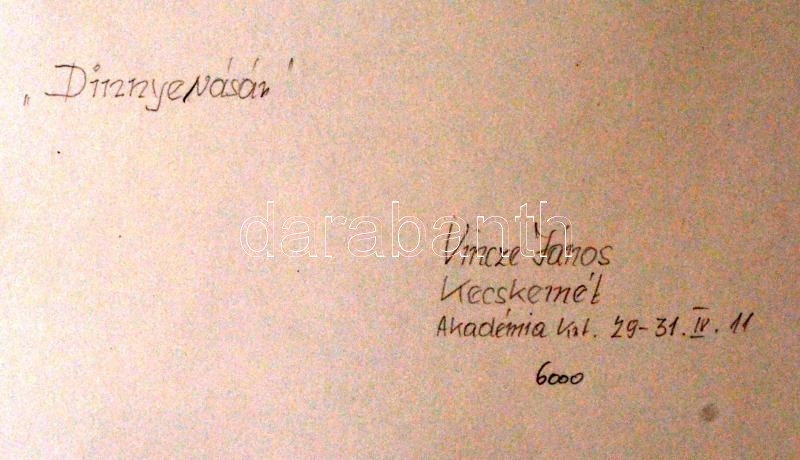 „Dinnyevásár"
darabanth
Vincze János
Kecskemét
Akadémia krt. 29-31. IV. 11
6000